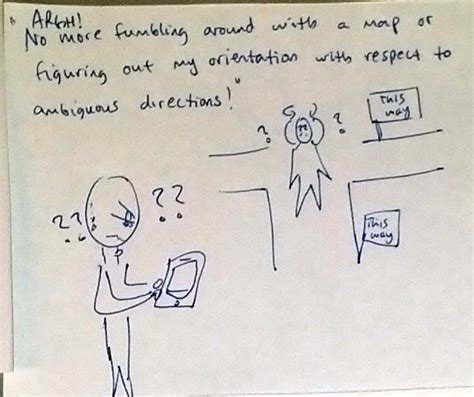 " ARGH!
No more fumbling around with a map or
figuring out my orientation with respect to
ambiguous directions!"
This
way
? ?
?? ??
This
way